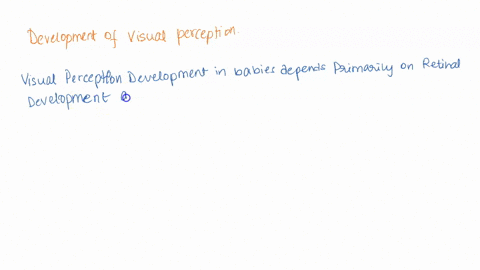 Development of visual perception.
Visual Perception Development in babies depends Primarily on Retinal
Development